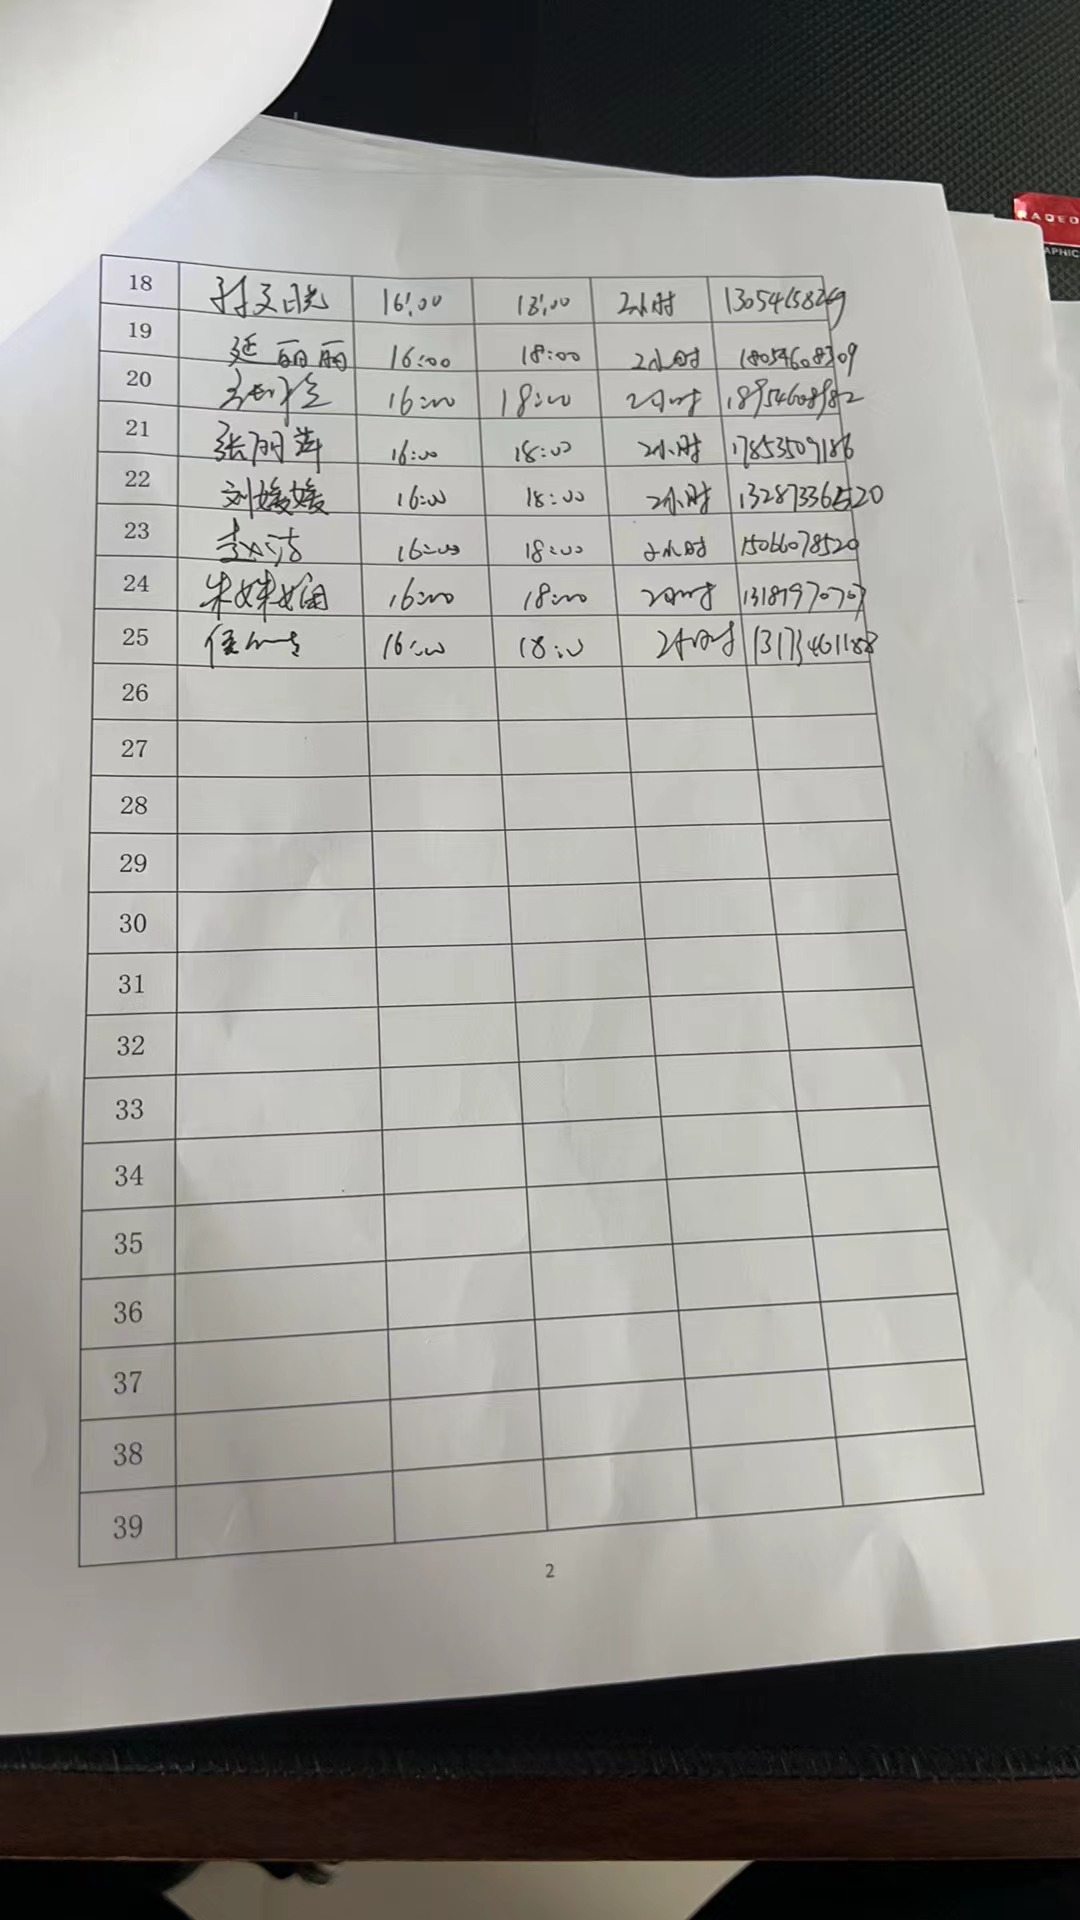 RADEO
APHIC
18 孙文晓 16:00 18:00 2小时 13054658269
19 延丽丽 16:00 18:00 2小时 18054608309
20 16:00 18:00 2小时 18954608982
21 张丽萍 16:00 18:00 2小时 17853509186
22 刘媛媛 16:00 18:00 2小时 13287336520
23 16:00 18:00 2小时 15066078520
24 朱姝娴 16:00 18:00 2小时 13181970707
25 16:00 18:00 2小时 13173461188
26
27
28
29
30
31
32
33
34
35
36
37
38
39
2